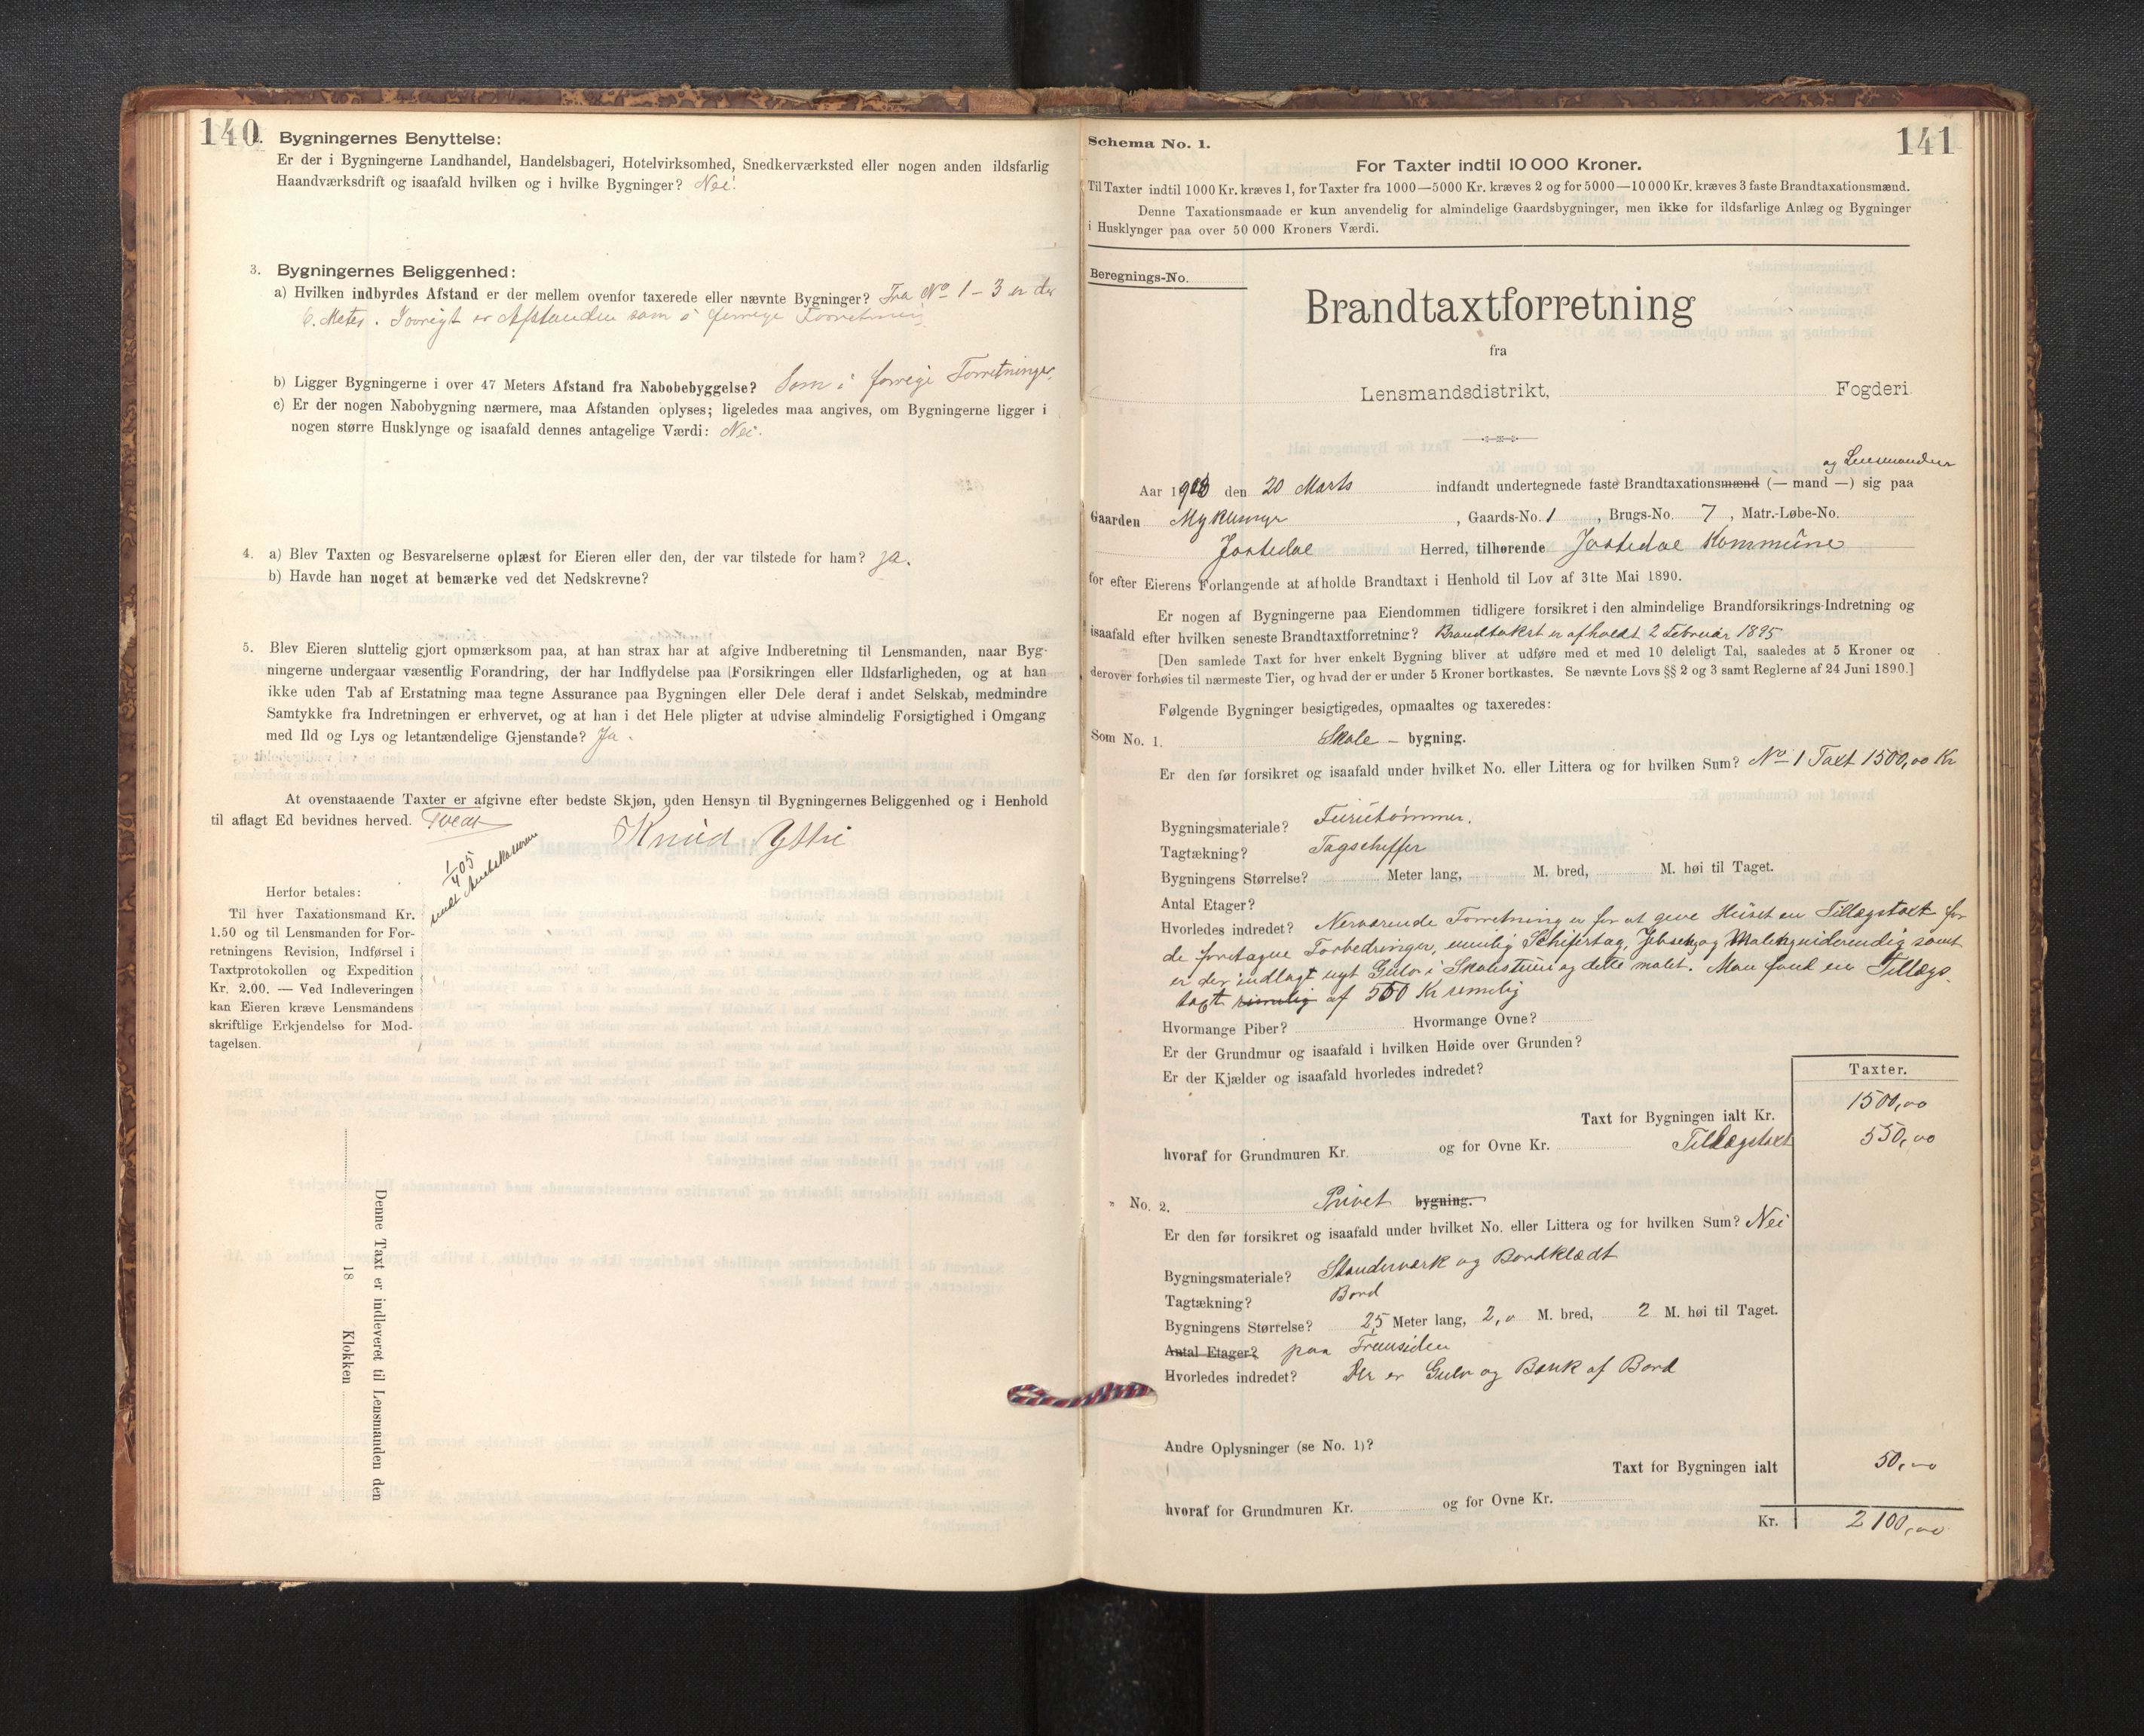 140
2. Bygningernes Benyttelse:
Er der i Bygningerne Landhandel, Handelsbageri, Hotelvirksomhed, Snedkerværksted eller nogen anden ildsfarlig
Haandværksdrift og isaafald hvilken og i hvilke Bygninger? Nei.
3. Bygningernes Beliggenhed:
a) Hvilken indbyrdes Afstand er der mellem ovenfor taxerede eller nævnte Bygninger? Fra No 1 - 3 er der
6. Meter. Iøvrigt er Afstanden som i forrige Forretning
b) Ligger Bygningerne i over 47 Meters Afstand fra Nabobebyggelse? Som i forrige Forretninger.
c) Er der nogen Nabobygning nærmere, maa Afstanden oplyses; ligeledes maa angives, om Bygningerne ligger i
nogen større Husklynge og isaafald dennes antagelige Værdi: Nei.
4. a) Blev Taxten og Besvarelserne oplæst for Eieren eller den, der var tilstede for ham? Ja.
b) Havde han noget at bemærke ved det Nedskrevne?
5. Blev Eieren sluttelig gjort opmærksom paa, at han strax har at afgive Indberetning til Lensmanden, naar Byg-
ningerne undergaar væsentlig Forandring, der har Indflydelse paa Forsikringen eller Ildsfarligheden, og at han
ikke uden Tab af Erstatning maa tegne Assurance paa Bygningen eller Dele deraf i andet Selskab, medmindre
Samtykke fra Indretningen er erhvervet, og at han i det Hele pligter at udvise almindelig Forsigtighed i Omgang
med Ild og Lys og letantændelige Gjenstande? Ja.
At ovenstaaende Taxter er afgivne efter bedste Skjøn, uden Hensyn til Bygningernes Beliggenhed og i Henhold
til aflagt Ed bevidnes herved. Tvedt
Knud Yttri
1/4 05
Herfor betales:
Til hver Taxationsmand Kr.
1.50 og til Lensmanden for For-
retningens Revision, Indførsel i
Taxtprotokollen og Expedition
Kr. 2.00. — Ved Indleveringen
kan Eieren kræve Lensmandens
skriftlige Erkjendelse for Mod-
tagelsen.
Denne Taxt er indleveret til Lensmanden den
18 Klokken
141
Schema No. 1.
For Taxter indtil 10 000 Kroner.
Til Taxter indtil 1000 Kr. kræves 1, for Taxter fra 1000—5000 Kr. kræves 2 og for 5000—10 000 Kr. kræves 3 faste Brandtaxationsmænd.
Denne Taxationsmaade er kun anvendelig for almindelige Gaardsbygninger, men ikke for ildsfarlige Anlæg og Bygninger
i Husklynger paa over 50 000 Kroners Værdi.
Beregnings-No.
Brandtaxtforretning
fra
Lensmandsdistrikt, Fogderi
og Lensmanden
Aar den 20 Marts indfandt undertegnede faste Brandtaxationsmænd (— mand —) sig paa
Gaarden Myklemyr, Gaards-No. 1, Brugs-No. 7, Matr.-Løbe-No.
Jostedal Herred, tilhørende Jostedal Kommune
for efter Eierens Forlangende at afholde Brandtaxt i Henhold til Lov af 31te Mai 1890.
Er nogen af Bygningerne paa Eiendommen tidligere forsikret i den almindelige Brandforsikrings-Indretning og
isaafald efter hvilken seneste Brandtaxtforretning? Brandtakst er afholdt 2 Februar 1895
[Den samlede Taxt for hver enkelt Bygning bliver at udføre med et med 10 deleligt Tal, saaledes at 5 Kroner og
derover forhøies til nærmeste Tier, og hvad der er under 5 Kroner bortkastes. Se nævnte Lovs §§ 2 og 3 samt Reglerne af 24 Juni 1890.]
Følgende Bygninger besigtigedes, opmaaltes og taxeredes:
Som No. 1. Skole - bygning.
Er den før forsikret og isaafald under hvilket No. eller Littera og for hvilken Sum? No 1 Taxt 1500,00 Kr
Bygningsmateriale? Furutømmer.
Tagtækning? Tagschiffer
Bygningens Størrelse? Meter lang, M. bred, M. høi til Taget.
Antal Etager?
Hvorledes indredet? Nærværende Forretning er for at give Huset en Tillægstaxt for
de foretagne Forbedringer, nemlig Schifertag, og Maling udvendig samt
er der indlagt nyt Gulv i Skolestuen og dette malet. Man fand en Tillægs-
taxt rimelig af 550 Kr rimelig
Hvormange Piber? Hvormange Ovne?
Er der Grundmur og isaafald i hvilken Høide over Grunden?
Er der Kjælder og isaafald hvorledes indredet?
Taxter.
Taxt for Bygningen ialt Kr. 1500,00
hvoraf for Grundmuren Kr. og for Ovne Kr. Tillægstaxt 550,00
" No. 2. Privet bygning.
Er den før forsikret og isaafald under hvilket No. eller Littera og for hvilken Sum? Nei
Bygningsmateriale? Standerværk og Bordklædt
Tagtækning? Bord
Bygningens Størrelse? 2,5 Meter lang, 2,0 M. bred, 2 M. høi til Taget.
Antal Etager? paa Fremsiden
Hvorledes indredet? Der er Gulv og Bænk af Bord
Andre Oplysninger (se No. 1)?
Taxt for Bygningen ialt 50,00
hvoraf for Grundmuren Kr. og for Ovne Kr.
Kr. 2100,00